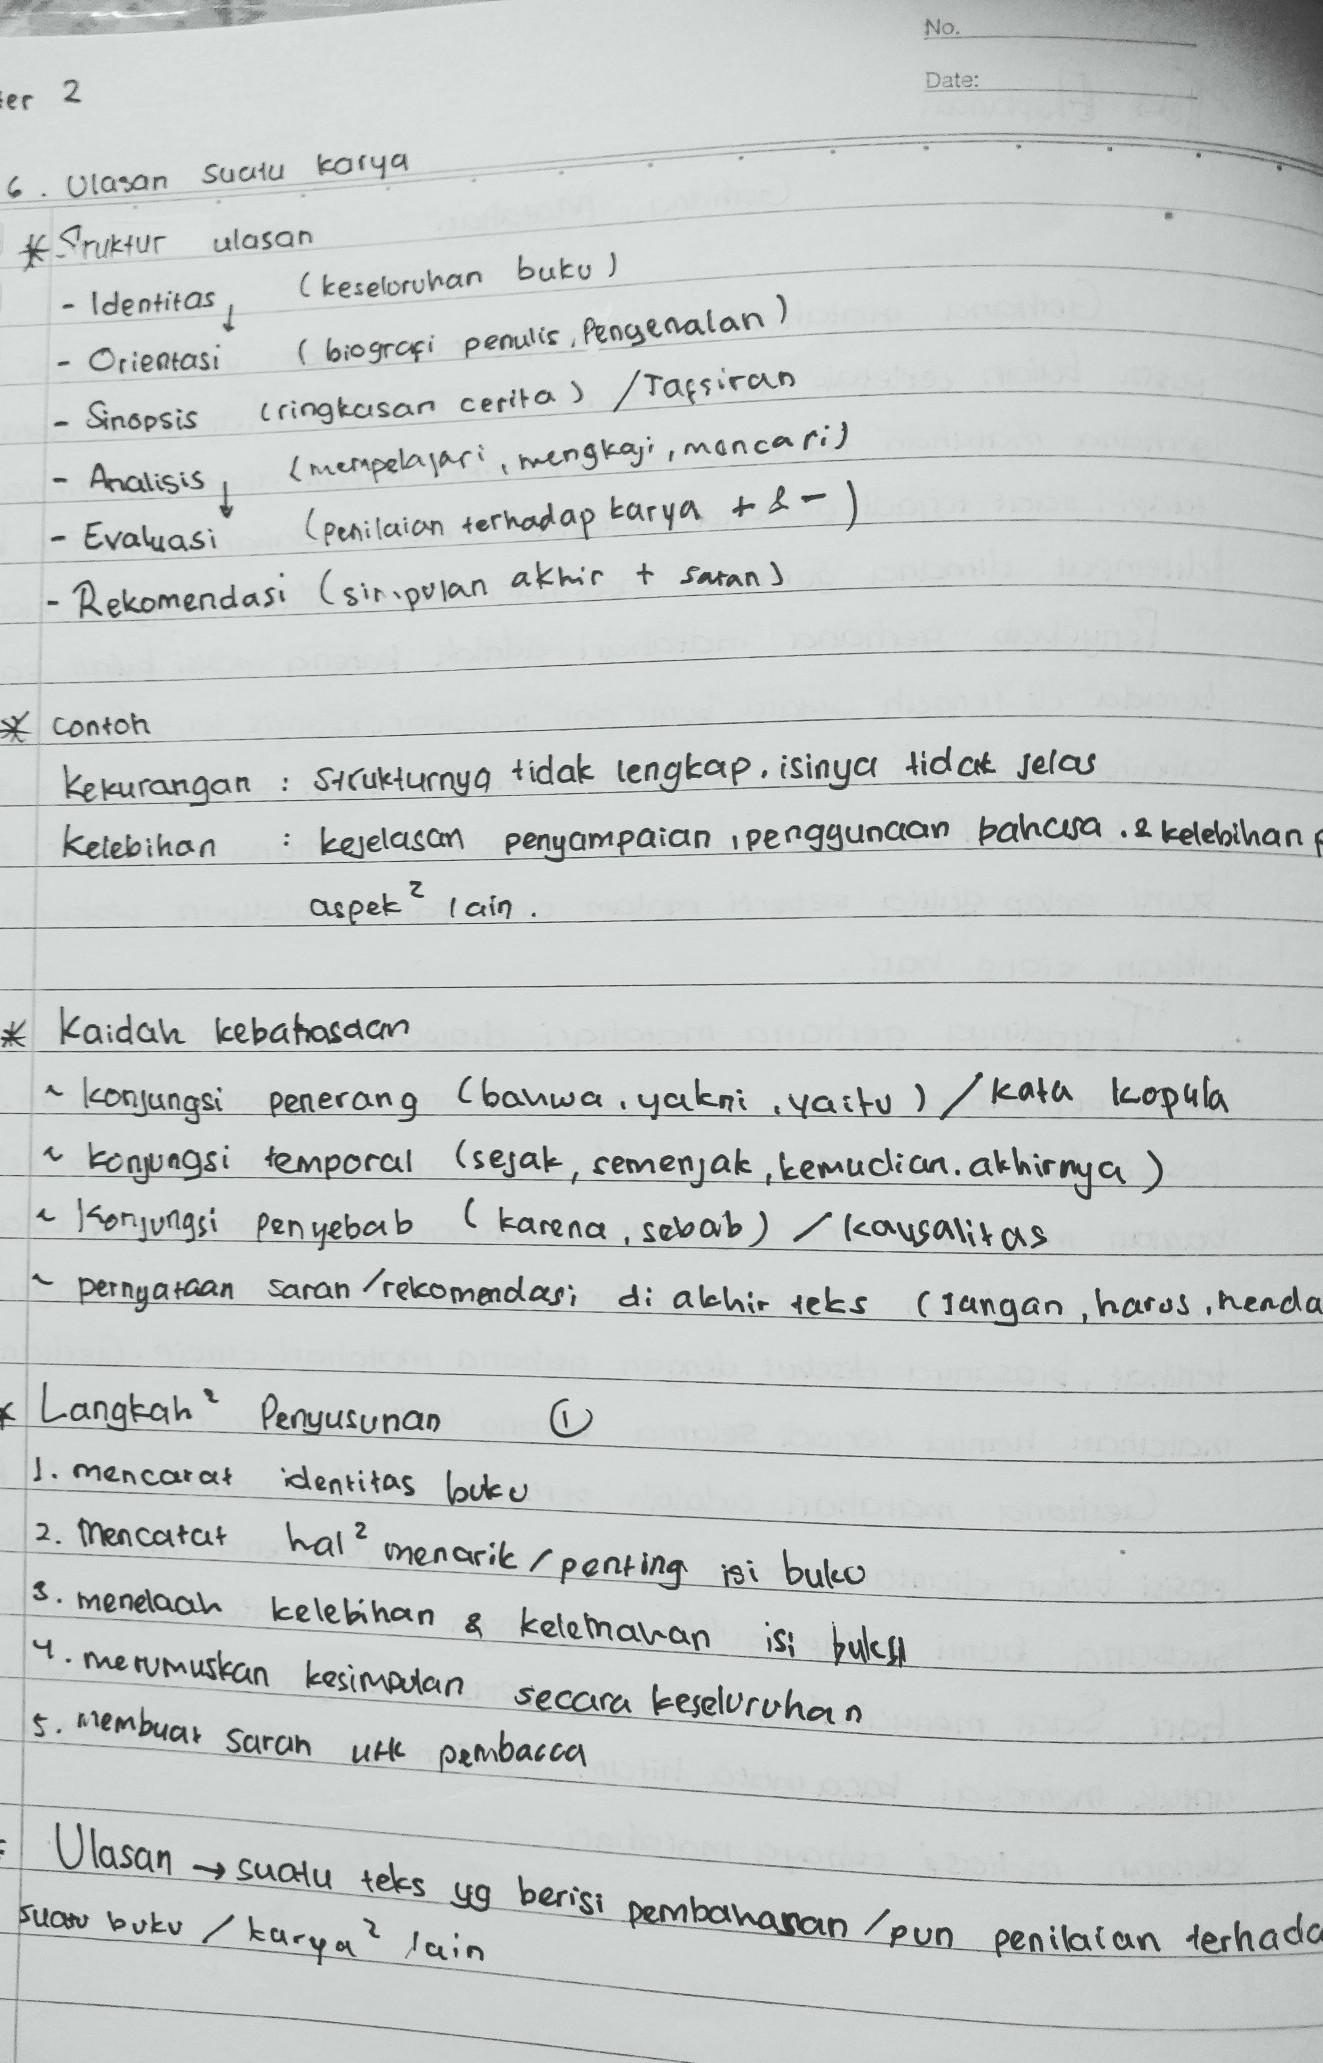 No.
Date:
ter 2
6. Ulasan suatu karya
* Sruktur ulasan
- Identitas ↓ (keseloruhan buku)
- Orientasi (biografi penulis, Pengenalan)
- Sinopsis (ringkasan cerita) / Tafsiran
- Analisis ↓ (mempelajari, mengkaji, mencari)
- Evaluasi (penilaian terhadap karya + & -)
- Rekomendasi (simpulan akhir + saran)
* contoh
Kekurangan : strukturnya tidak lengkap, isinya tidak jelas
Kelebihan : kejelasan penyampaian, penggunaan bahasa, & kelebihan p
aspek² lain.
* Kaidah kebahasaan
~ Konjungsi penerang (bahwa, yakni, yaitu) / kata kopula
~ konjungsi temporal (sejak, semenjak, kemudian, akhirnya)
~ Konjungsi penyebab (karena, sebab) / kausalitas
~ pernyataan saran/rekomendasi di akhir teks (jangan, harus, henda
* Langkah² Penyusunan ①
1. mencatat identitas buku
2. Mencatat hal² menarik / penting isi buku
3. menelaah kelebihan & kelemahan isi buku
4. merumuskan kesimpulan secara keseluruhan
5. Membuat saran utk pembacca
Ulasan → suatu teks yg berisi pembahasan /pun penilaian terhada
suatu buku / karya² lain